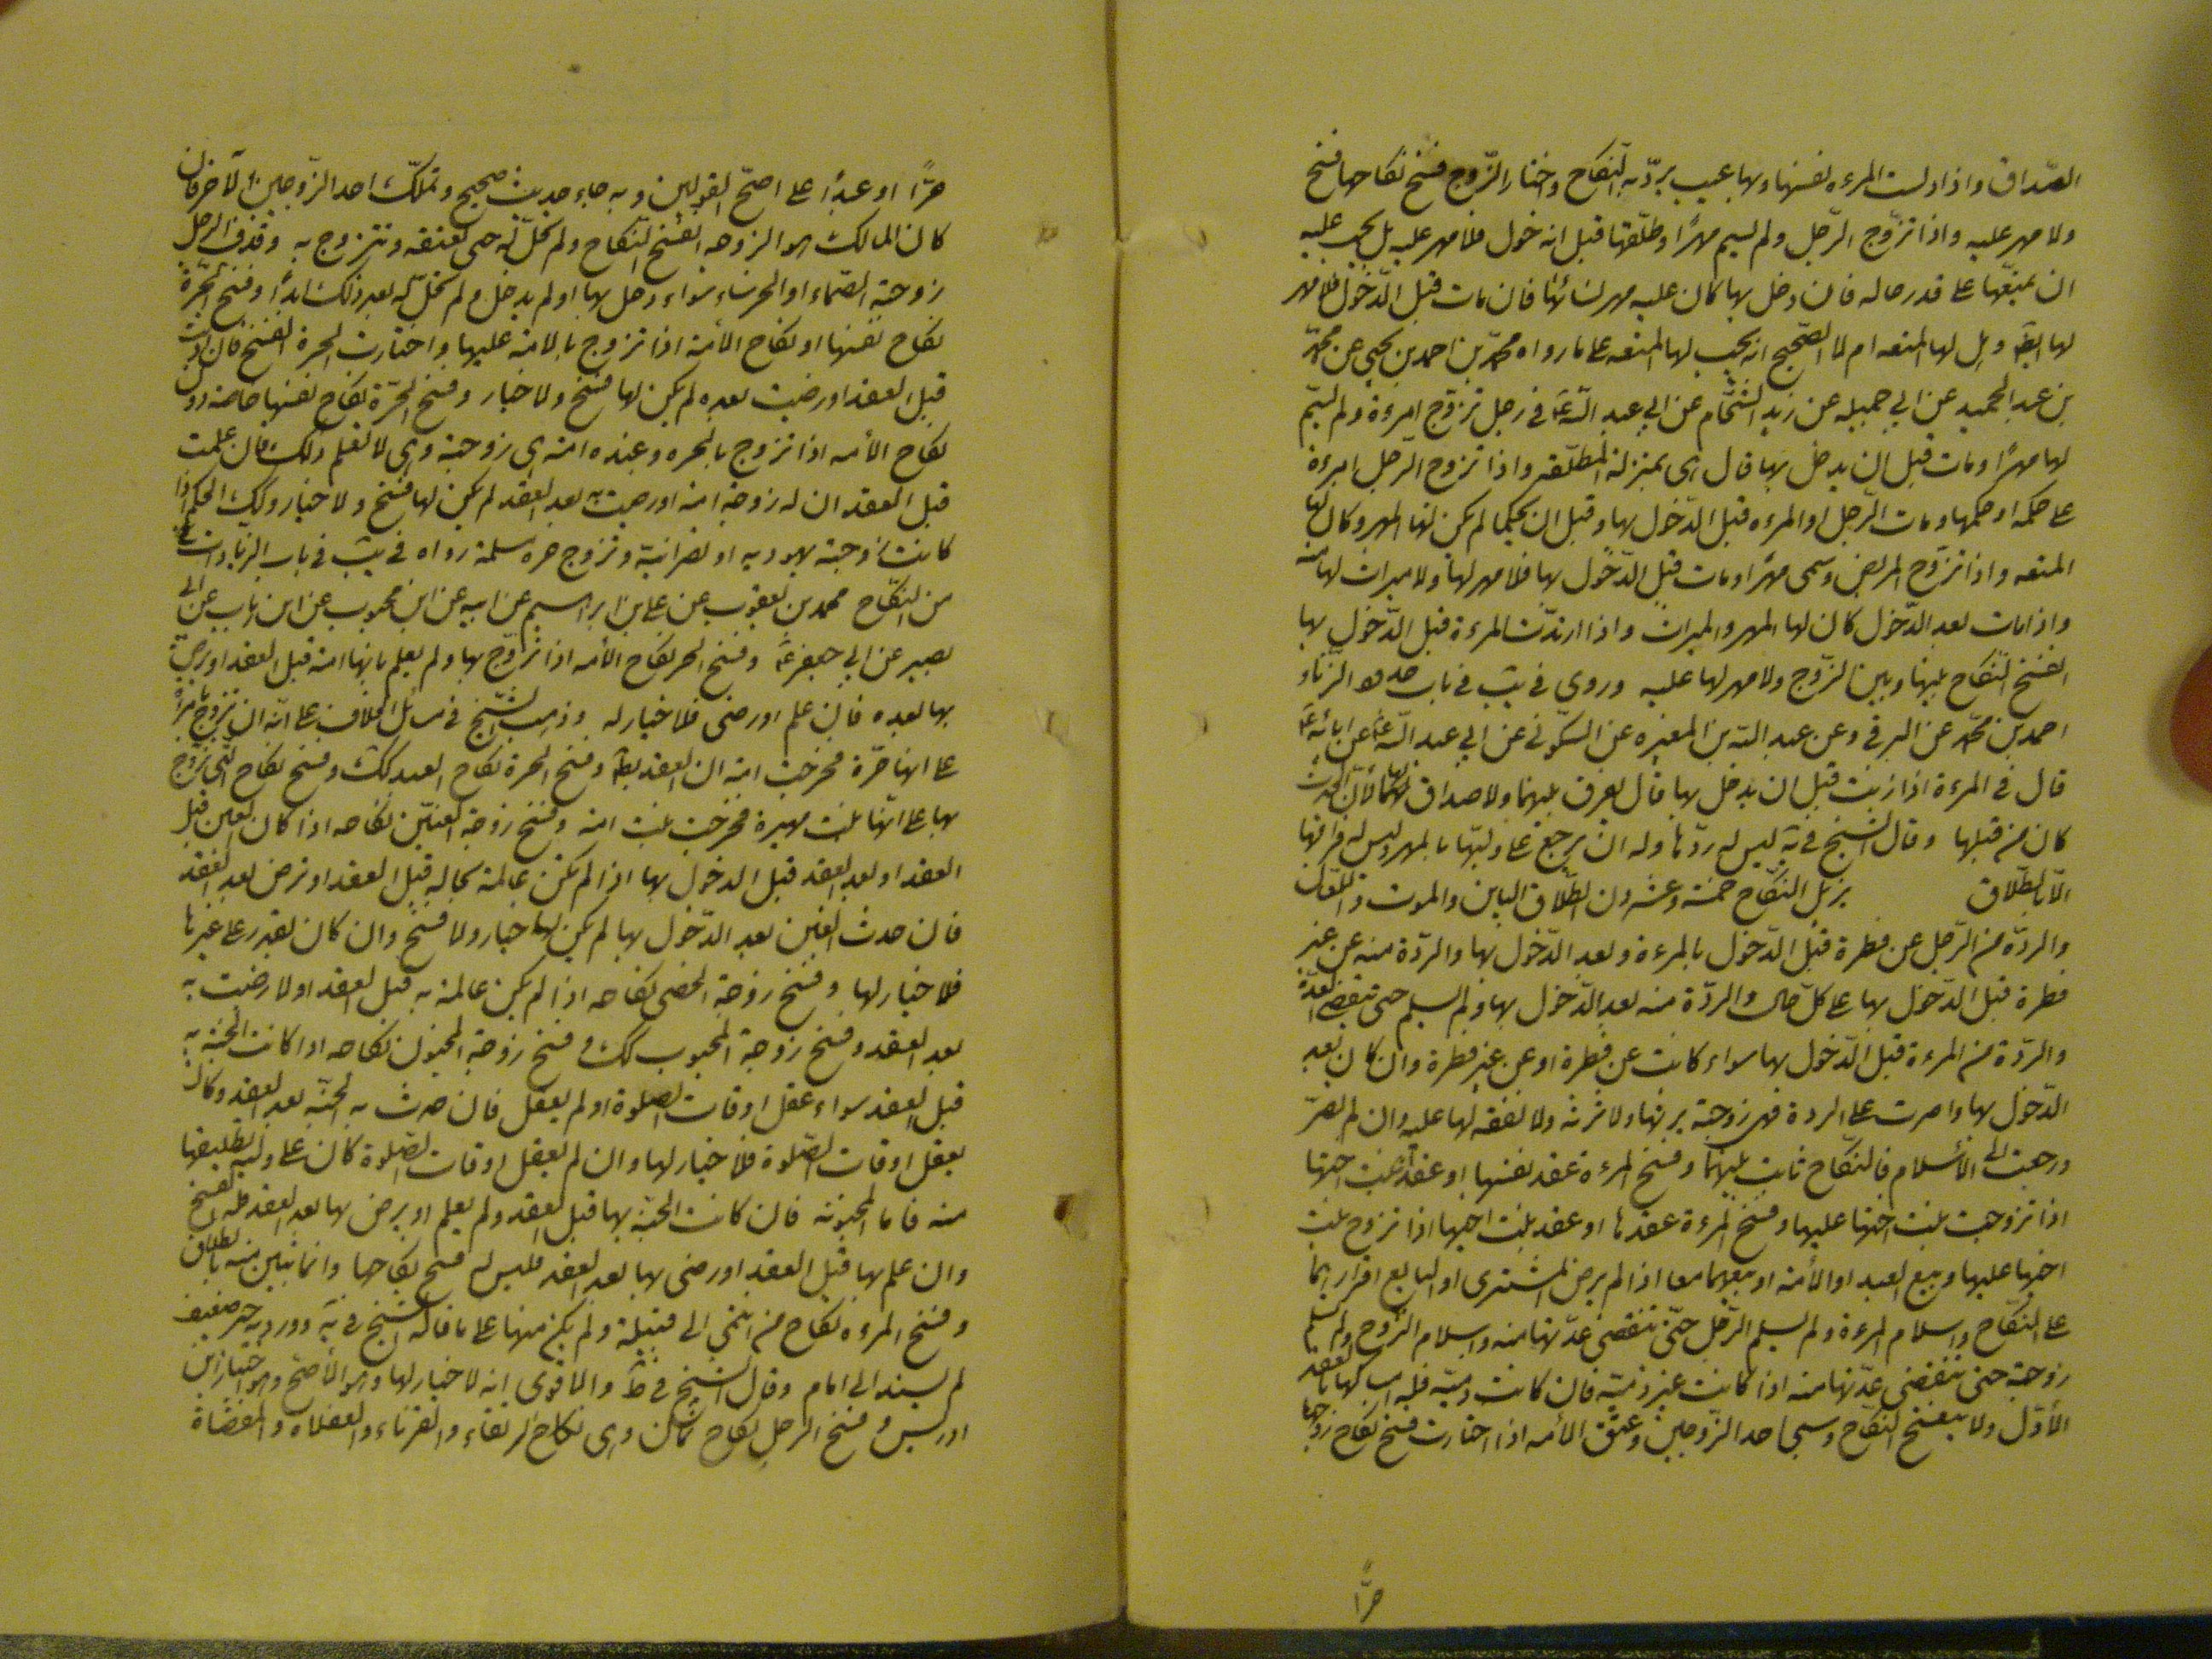 الصّداق واذا دلست المرءه نفسها وبها عيب يردّ به النّكاح واختار الزّوج فسخ نكاحها فسخ
ولا مهر عليه واذا تزوّج الرّجل ولم يسم مهرًا وطلّقها قبل الدخول فلا مهر عليه بل يجب عليه
ان يمتعّها على قدر حاله فان دخل بها كان عليه مهر نسائها فان مات قبل الدّخول فلا مهر
لها ايضا وهل لها المتعه ام لا الصّحيح انه يجب لها المتعه على ما رواه محمّد بن احمد بن يحيى عن محمّد
بن عبد الحميد عن ابي جميله عن زيد الشّحّام عن ابي عبد اللّه ع في رجل تزوّج امرءة ولم يسمّ
لها مهرًا ومات قبل ان يدخل بها قال هى بمنزلة المطلّقه واذا تزوج الرّجل امرءة
على حكمه او حكمها ومات الرّجل او المرءه قبل الدّخول بها وقبل ان يحكما لم يكن لها المهر وكان لها
المتعه واذا تزوّج المريض وسمى مهرًا ومات قبل الدّخول بها فلا مهر لها ولا ميراث لها منه
واذا مات بعد الدّخول كان لها المهر والميراث واذا ارتدّت المرءة قبل الدّخول بها
انفسخ النّكاح بينها وبين الزّوج ولا مهر لها عليه وروى في يب في باب حدود الزنا و
احمد بن محمّد عن البرقي وعن عبد اللّه بن المغيره عن السّكونى عن ابي عبد اللّه ع عن ابائه ع
قال في المرءة اذا زنت قبل ان يدخل بها قال يفرق بينهما ولا صداق لها لأنّ الحدث
كان من قبلها وقال الشيخ في يه ليس له ردّها وله ان يرجع على وليّها بالمهر وليس له فراقها
الّا بالطّلاق يزيل النّكاح خمسة وعشرون الطّلاق الباين والموت واللّعان
والردّة من الرّجل عن فطرة قبل الدّخول بالمرءة وبعد الدّخول بها والردّة منه عن غير
فطرة قبل الدّخول بها على كلّ حال والردّة منه بعد الدّخول بها ولم يسلم حتى تنقضى العدّة
والردّة من المرءة قبل الدّخول بها سواء كانت عن فطرة او عن غير فطرة وان كان بعد
الدّخول بها واصرت على الردة فهى زوجته يرثها ولا ترثه ولا نفقه لها عليه وان لم تصرّ
ورجعت الى الأسلام فالنكاح ثابت بينهما وفسخ المرءة عقد نفسها او عقد بنت اختها
اذا تزوجت بنت اختها عليها وفسخ المرءة عقدها او عقد بنت اخيها اذا تزوج بنت
اخيها عليها وبيع العبد او الأمة او بيعهما معا اذا لم يرض المشترى او البايع اقرارهما
على النّكاح واسلام المرءة ولم يسلم الرّجل حتّى تنقضى عدّتها منه واسلام الزّوج ولم تسلم
زوجته حتى تنقضى عدّتها منه اذا كانت غير ذميّه فان كانت ذميّه فله امساكها بالعقد
الأوّل ولا ينفسخ النّكاح وسبي احد الزّوجين وعتق الأمه اذا اختارت فسخ نكاح زوجها
حرًّا
حرًّا او عبدًا على اصحّ القولين وبه جاء حديث صحيح وتملّك احد الزّوجين الآخر فان
كان المالك هو الزوجه انفسخ النّكاح ولم تحلّ له حتى تعتقه وتتزوج به وقذف الرجل
زوجته الصّماء او الخرساء سواء دخل بها او لم يدخل ولم تحلّ له بعد ذلك ابدًا وفسخ الحرّة
نكاح نفسها او نكاح الأمة اذا تزوج بالامة عليها واختارت الحرة الفسخ فان اذنت
قبل العقد او رضيت بعده لم يكن لها فسخ ولا خيار وفسخ الحرّة نكاح نفسها خاصة دون
نكاح الأمه اذا تزوج بالحره وعنده امة هى زوجته وهى لا تعلم ذلك فان علمت
قبل العقد ان له زوجة امة او رضيت به بعد العقد لم يكن لها فسخ ولا خيار وكذلك الحكم اذا
كانت زوجته يهوديه او نصرانيّة وتزوج حره مسلمة رواه في يب في باب الزيادات
من النّكاح محمد بن يعقوب عن على بن ابراهيم عن ابيه عن ابن محبوب عن ابن رئاب عن ابى
بصير عن ابي جعفر ع وفسخ الحر نكاح الأمه اذا تزوّج بها ولم يعلم بانها امة قبل العقد او رضى
بها بعده فان علم او رضى فلا خيار له وذهب الشّيخ في مسائل الخلاف على انّه ان تزوج امرءة
على انها حرّة فخرجت امة ان العقد بط وفسخ الحرة نكاح العبد كك وفسخ نكاح الّتى تزوّج
بها على انّها بنت مهيرة فخرجت بنت امة وفسخ زوجة العنيّن نكاحه اذا كان العنن قبل
العقد او بعد العقد قبل الدخول بها اذا لم تكن عالمة بحاله قبل العقد او ترض بعد العقد
فان حدث العنن بعد الدّخول بها لم يكن لها خيار ولا فسخ وان كان يقدر على غيرها
فلا خيار لها وفسخ زوجة الخصى نكاحه اذا لم يكن عالمة به قبل العقد او لا رضيت به
بعد العقد وفسخ زوجة المجبوب كك وفسخ زوجة المجنون نكاحه اذا كانت الجنّة به
قبل العقد سواء عقل اوقات الصلوة او لم يعقل فان حدث به الجنّة بعد العقد وكان
يعقل اوقات الصّلوة فلا خيار لها وان لم يعقل اوقات الصّلوة كان على وليّه تطليقها
منه فاما المجنونه فان كانت الجنّة بها قبل العقد ولم يعلم او يرض بها بعد العقد فله الفسخ
وان علم بها قبل العقد او رضى بها بعد العقد فليس له فسخ نكاحها وانما تبين منه بالطلاق
وفسخ المرءه نكاح من انتمى الى قبيلة ولم يكن منها على ما قاله الشيخ في يه وورد به خبر ضعيف
لم يسند الى امام وقال الشيخ في ط والاقوى انه لا خيار لها وهو الأصحّ وهو اختيار ابن
ادريس وفسخ الرجل نكاح ثمان وهى نكاح الرتقاء والقرناء والعفلاء والمفضاة